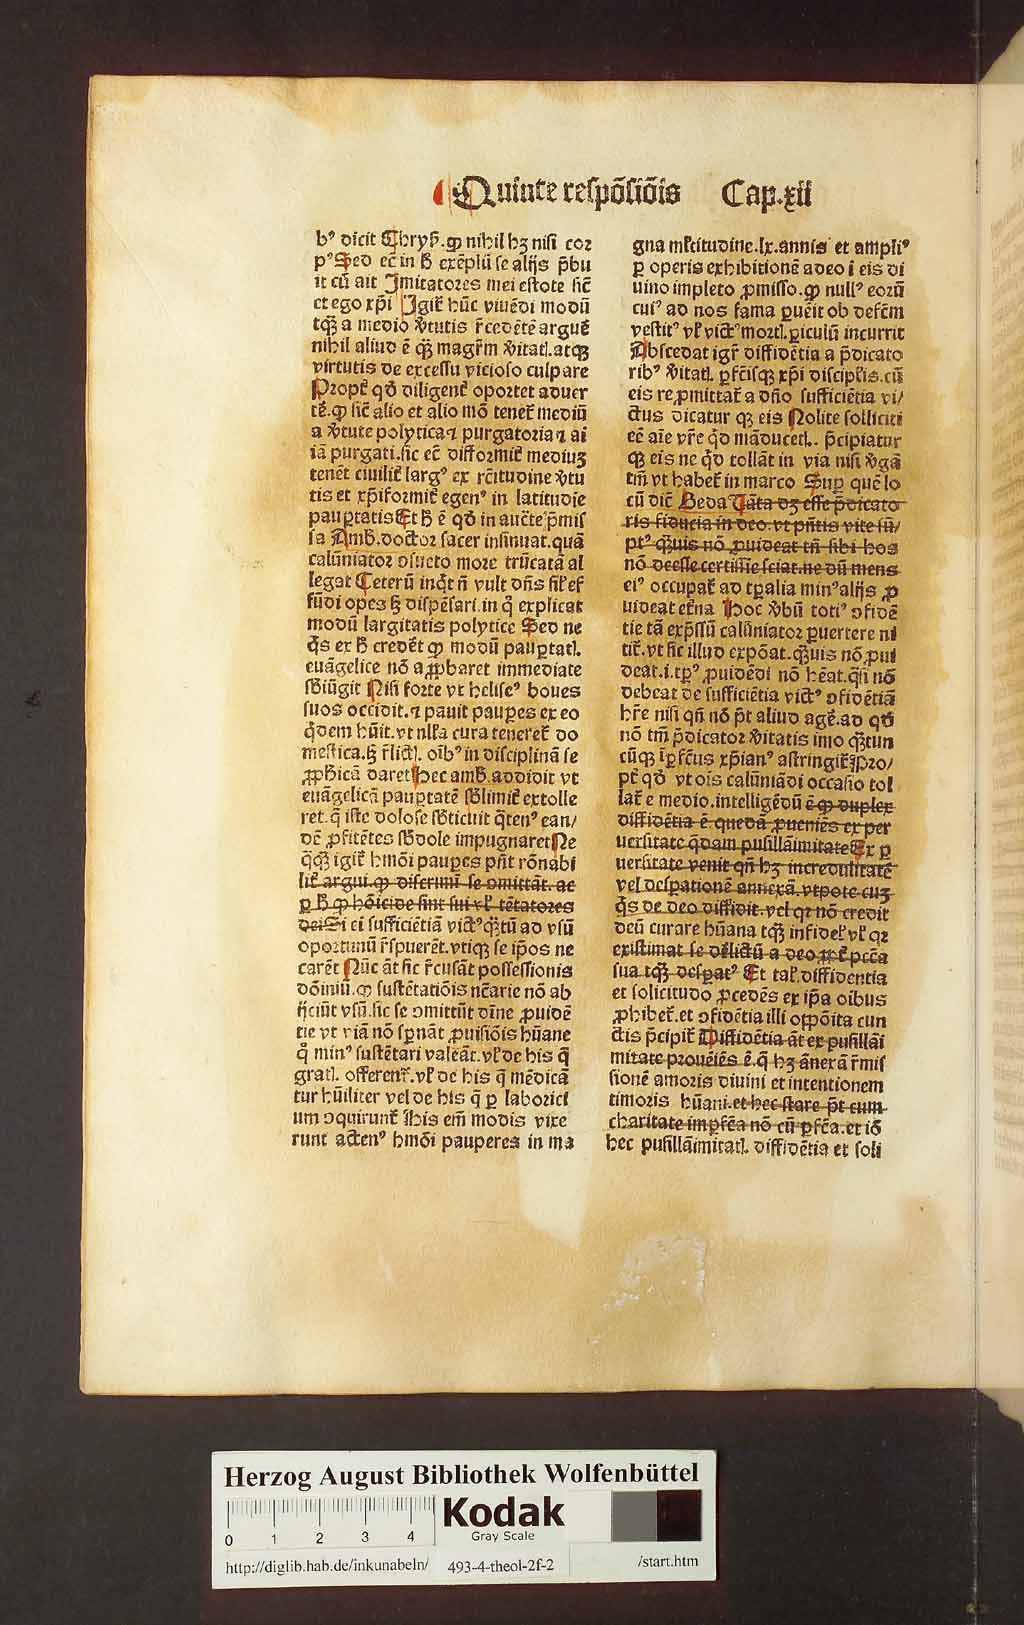 Quinte respõsiõis Cap.xii
bꝰ dicit Chryẜ.ꝙ nihil hꝫ nisi cor
pꝰ Sed ec̃ in ẖ exẽplũ se alijs p̃bu
it cũ ait Imitatores mei estote sic̃
et ego xp̃i Igit̃ hũc viuẽdi modũ
tq̃ꝫ a medio v̓tutis r̃cedẽtẽ arguẽ
nihil aliud ẽ q̃ꝫ magr̃m v̓itatl.atqꝫ
virtutis de excessu vicioso culpare
Propt̃ qd̃ diligent̃ oportet aduer
tẽ.ꝙ sic̃ alio et alio mõ tenet̃ mediũ
a v̓tute polytica⁊ purgatoria⁊ ai
iã purgati.sic ec̃ difformit̃ mediuꝫ
tenẽt ciuilit̃ largꝰ ex rc̃itudine v̓tu
tis et xp̃iformit̃ egenꝰ in latitudĩe
pauꝑtatis Et ẖ ẽ qd̃ in auc̃te p̃mis
sa Amb̃.doctor sacer insinuat.quã
calũniator ↄsueto more trũcatã al
legat Ceterũ inq̃t ñ vult dñs sil̃ ef
fũdi opes ẖ dispẽsari.in q̃ explicat
modũ largitatis polytice Sed ne
q̃s ex ẖ credẽt ꝙ modũ pauꝑtatl.
euãgelice nõ aꝓbaret immediate
sb̃iũgit Nisi forte vt heliseꝰ boues
suos occidit.⁊ pauit pauꝑes ex eo
q̃dem hũit.vt nl̃la cura teneret̃ do
mestica.ẖ r̃lictl. oĩbꝰ in disciplinã se
ꝓph̃icã daret Hec amb̃.addidit vt
euãgelicã pauꝑtatẽ sb̃limit̃ extolle
ret.q̃ iste dolose sb̃ticuit q̃tenꝰ ean/
dẽ ꝓfitẽtes sb̃dole impugnaret Ne
q̃q̃ꝫ igit̃ hmõi pauꝑes pñt rõnabi
lit̃ argui.ꝙ discrimẽ se ↄmittãt. ac
ꝑ ẖ ꝙ hõicide sint sui vl̃ tẽtatores
dei Si ei sufficiẽtiã victꝰ q̃ꝫtũ ad vsũ
oportunũ r̃spuerẽt.vtiqꝫ se ip̃os ne
carẽt Nũc ãt sic r̃cusãt possessionis
dõminiũ.ꝙ sustẽtatiõis nc̃arie nõ ab
ijciũt vsũ.sic se ↄmittũt dĩne ꝓuidẽ
tie vt viã nõ sꝑnãt ꝓuisiõis hũane
q̃ minꝰ sustẽtari valeãt.vl̃ de his q̃
gratl. offerent̃.vl̃ de his q̃ mẽdicã
tur hũiliter vel de his q̃ ꝑ laborici
um ↄquirunt̃ His em̃ modis vixe
runt actenꝰ hmõi pauperes in ma
gna ml̃titudine.lx.annis et ampliꝰ
ꝑ operis exhibitionẽ adeo i eis di
uino impleto ꝓmisso.ꝙ nullꝰ eorũ
cuiꝰ ad nos fama ꝑuẽit ob defc̃m
vestitꝰ vl̃ victꝰ mortl.ꝑiculũ incurrit
Abscedat igr̃ diffidẽtia a p̃dicato
ribꝰ v̓itatl. ꝑfc̃isqꝫ xp̃i discipl̃is.cũ
eis reꝓmittat̃ a dño sufficiẽtia vi/
ctus dicatur qꝫ eis Nolite solliciti
eẽ aĩe vr̃e q̃d mãducetl. p̃cipiatur
qꝫ eis ne q̃d tollãt in via nisi v̓gã
tm̃ vt habet̃ in marco Suꝑ quẽ lo
cũ dic̃ Beda Tãta dꝫ esse p̃dicato
ris fiducia in deo.vt p̃ñtis vite sũ/
ptꝰ q̃ꝫuis nõ ꝓuideat tñ sibi hos
nõ deesse certissie sciat.ne dũ mens
eiꝰ occupat̃ ad tꝑalia minꝰ alijs ꝓ
uideat et̃na Hoc v̓bũ totiꝰ ↄfidẽ
tie tã exp̃ssũ calũniator ꝑuertere ni
tit̃.vt sic illud expõat.q̃ꝫuis nõ ꝓui
deat.i.tꝑꝰ ꝓuidẽdi nõ hẽat.q̃si nõ
debeat de sufficiẽtia victꝰ ↄfidẽtiã
hr̃e nisi qñ nõ p̃t aliud agẽ.ad qd̃
nõ tm̃ p̃dicator v̓itatis imo q̃ꝫtun
cũqꝫ ĩꝑfc̃us xp̃ianꝰ astringit̃ Pro/
pt̃ qd̃ vt ois calũniãdi occasio tol
lat̃ e medio.intelligẽdũ ẽ ꝙ duplex
diffidẽtia ẽ quedã ꝓueniẽs ex per
uersitate q̃dam pusillãimitate Ex ꝑ
uersitate venit qñ hꝫ incredulitatẽ
vel desꝑationẽ annexã.vtpote cuꝫ
q̃s de deo diffidit.vel qꝛ nõ credit
deũ curare hũana tq̃ꝫ infidel̃ vl̃ qꝛ
existimat se delictũ a deo ꝓpt̃ pcc̃a
sua tq̃ꝫ desꝑatꝰ Et tal̃ diffidentia
et solicitudo ꝓcedẽs ex ip̃a oibus
ꝓhibet̃.et ↄfidẽtia illi opp̃oita cun
ctis p̃cipit̃ Diffidẽtia ãt ex pusillãi
mitate proueiẽs ẽ.q̃ hꝫ ãnexã r̃mis
sionẽ amoris diuini et intentionem
timoris hũani.et hec stare p̃t cum
charitate imꝑfc̃a nõ cũ ꝑfc̃a.et iõ
hec pusillãimitatl. diffidẽtia et soli
Herzog August Bibliothek Wolfenbüttel
0 1 2 3 4
Kodak
Gray Scale
http://diglib.hab.de/inkunabeln/ 493-4-theol-2f-2 /start.htm